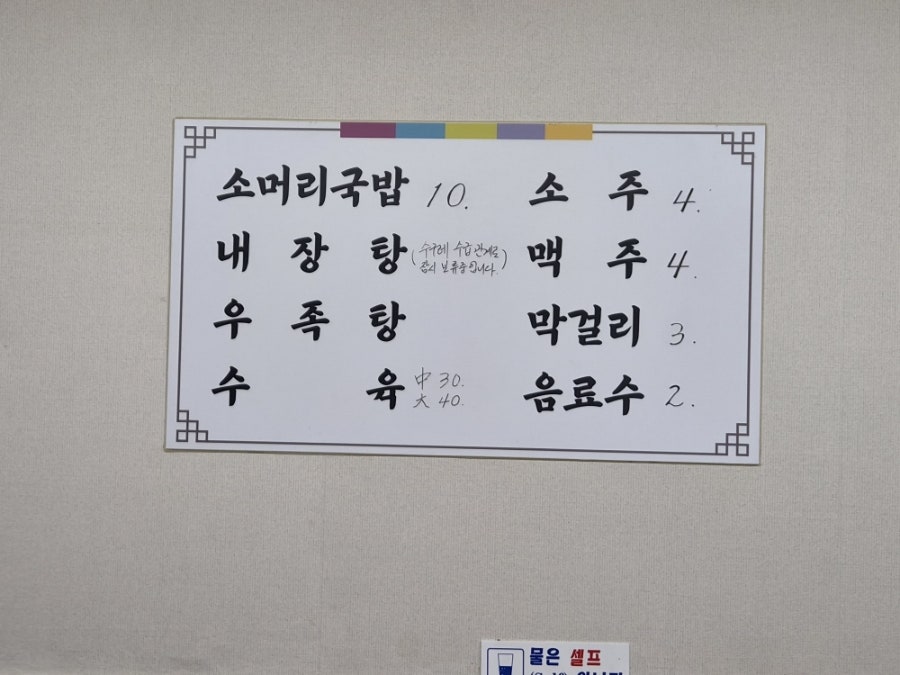 소머리국밥 10.
내장탕 (수구레 수급관계로
잠시 보류중입니다.)
우족탕
수육 中 30.
大 40.
소주 4.
맥주 4.
막걸리 3.
음료수 2.
물은 셀프